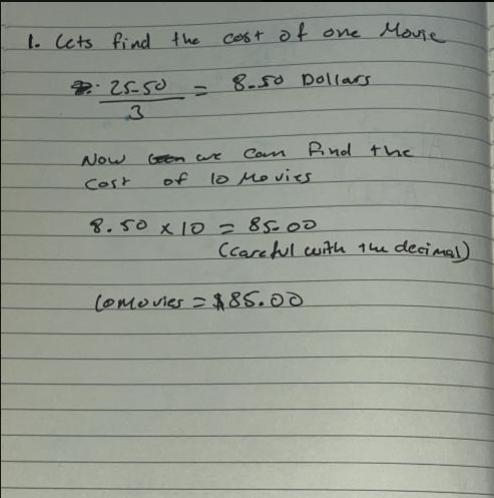 1. Lets find the cost of one Movie
25.50 = 8.50 Dollars
3
Now we can find the
cost of 10 Movies
8.50 x 10 = 85.00
(careful with the decimal)
10 movies = $85.00